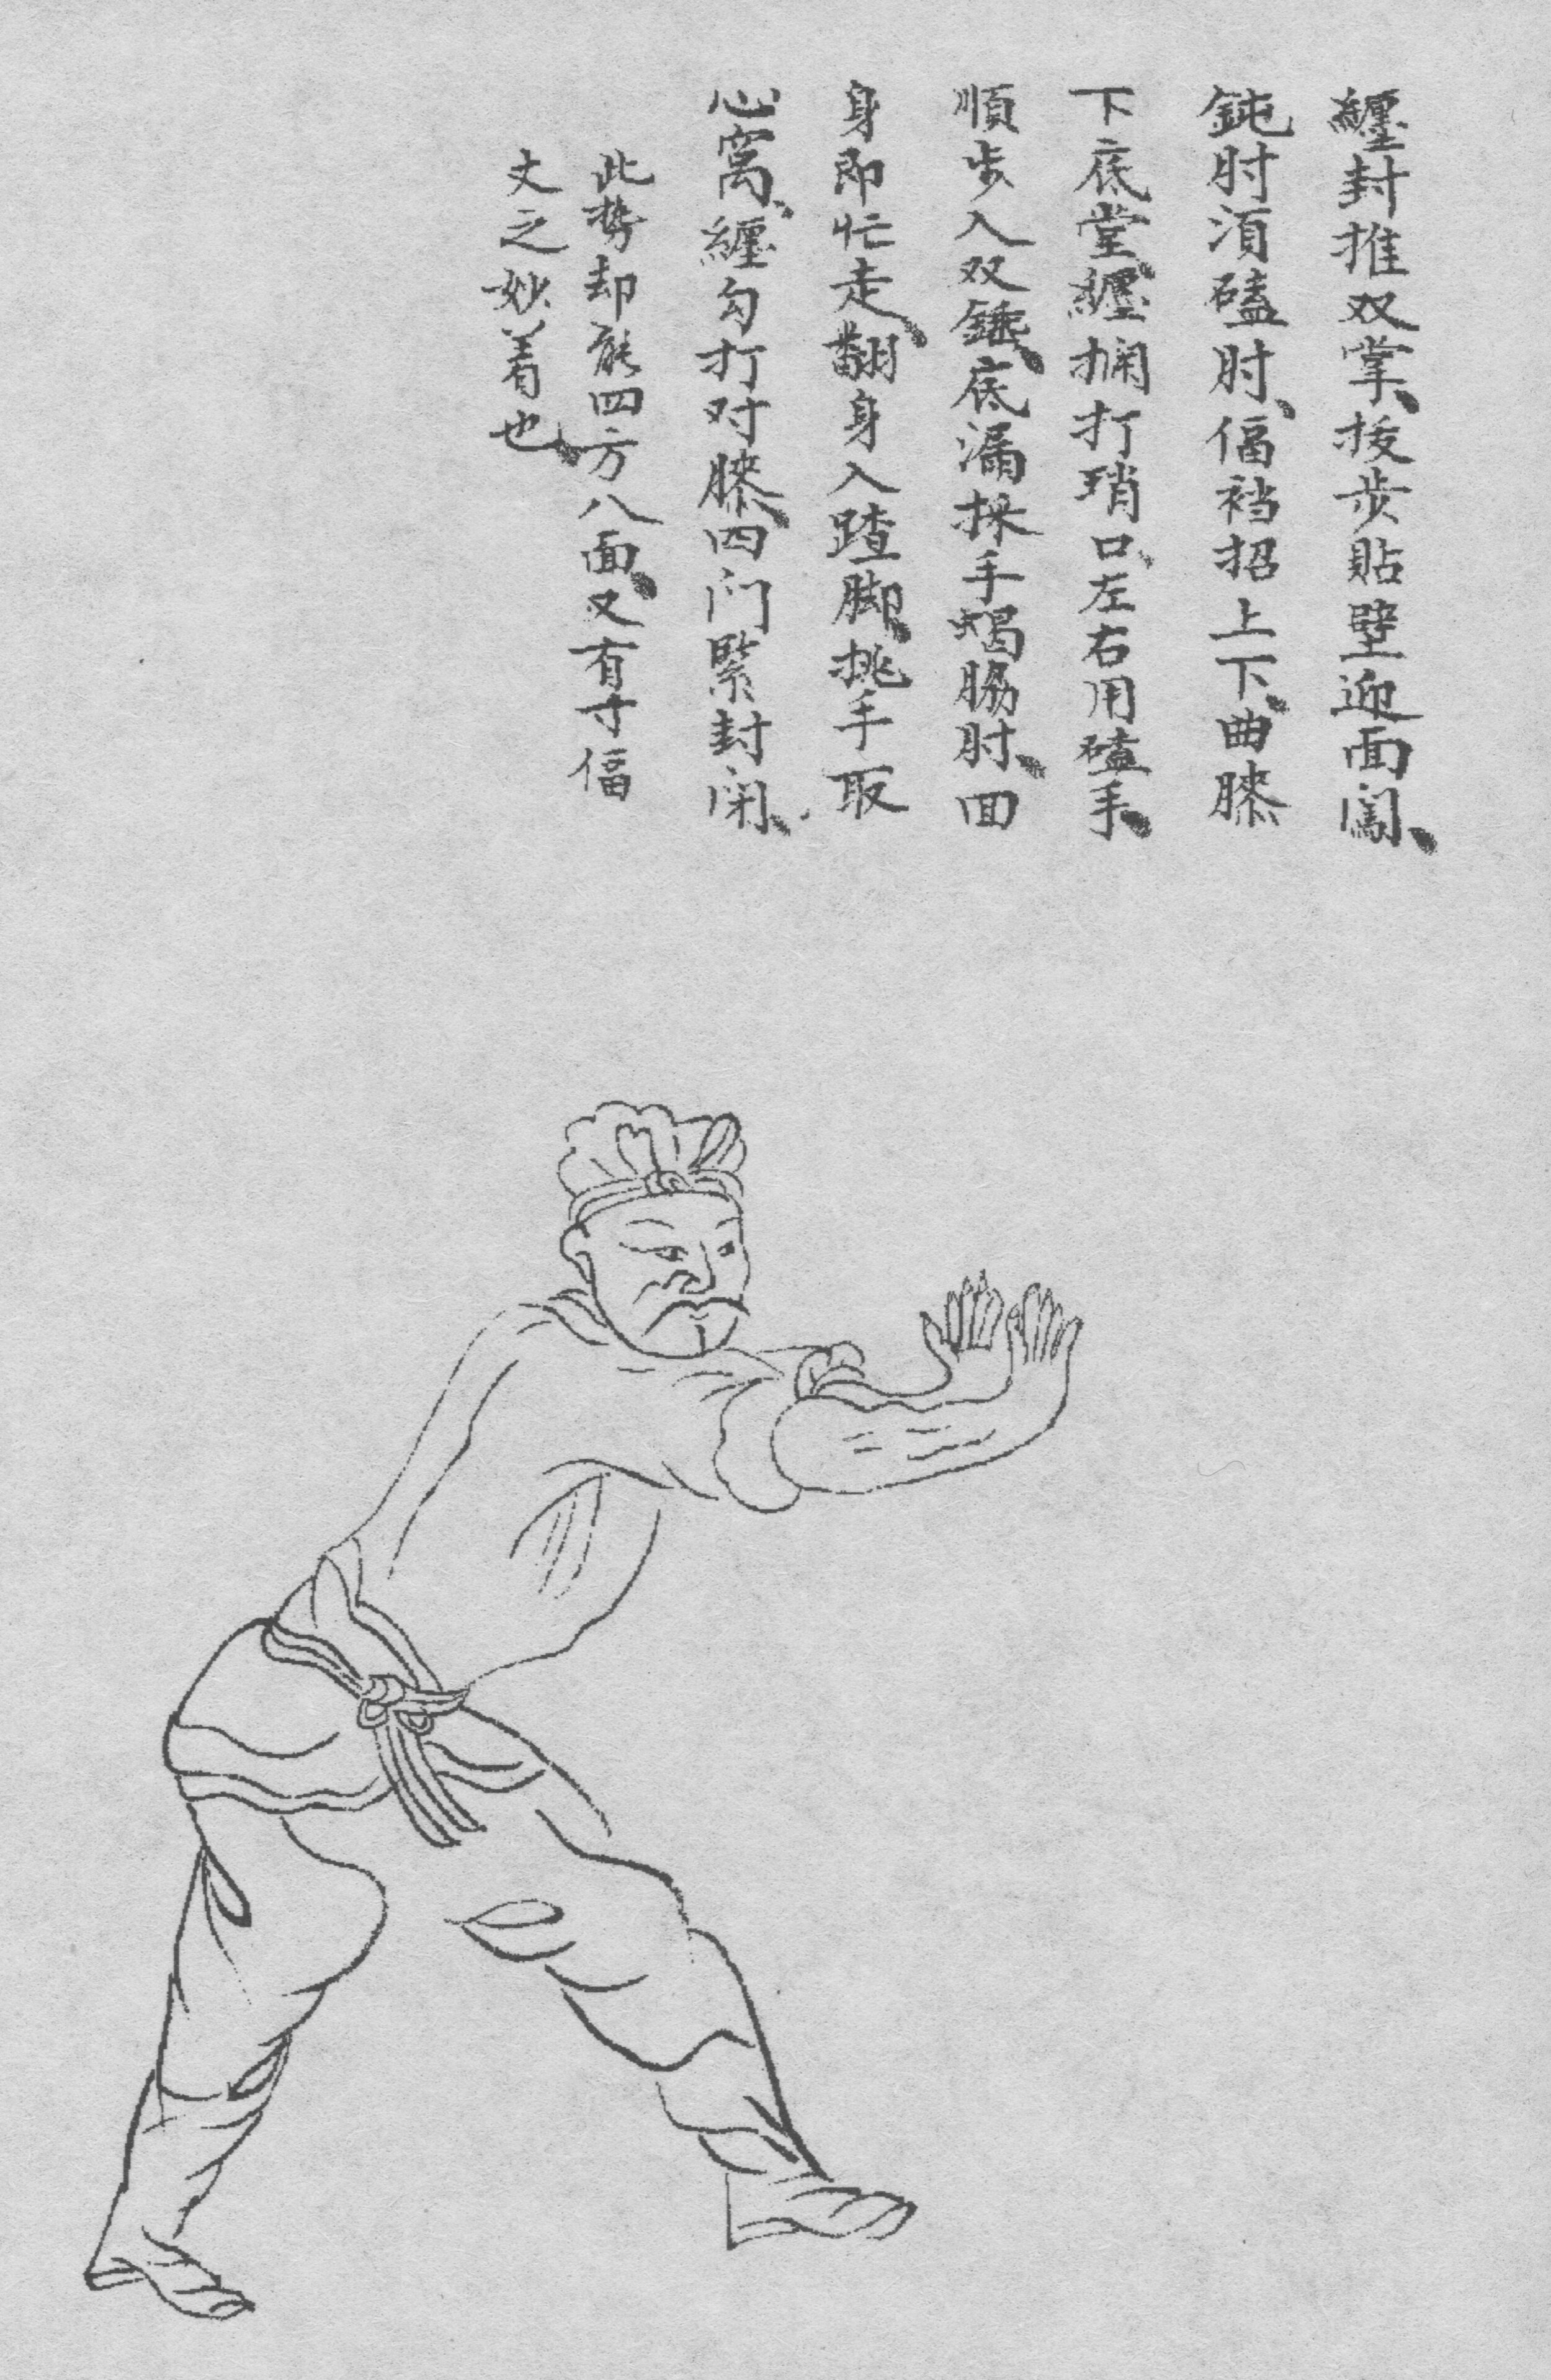 纒封推双掌、拨步貼壁迎面闖、
鈍肘湏磕肘、偪裆招上下、曲膝
下底堂、纒拥打琑口、左右用磕手、
順步入双錘、底漏採手蝎脇肘、回
身即忙走、翻身入蹅脚、挑手取
心窩、纒勾打对膝、四门緊封闭、
此势却能四方八面、又有寸偪
丈之妙着也、